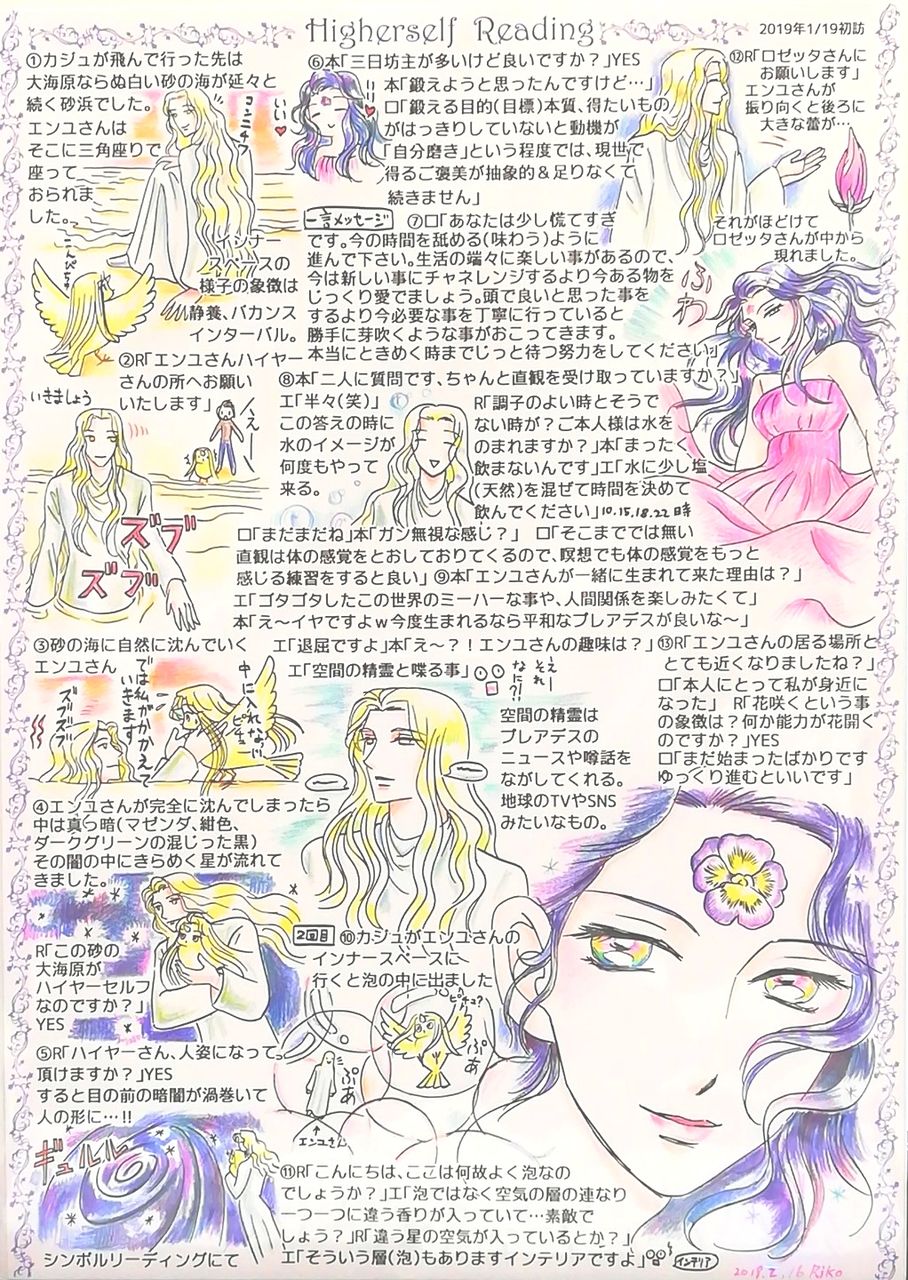 Higherself Reading
2019年1/19初訪
①カジュが飛んで行った先は
大海原ならぬ白い砂の海が延々と
続く砂浜でした。
エンユさんは
そこに三角座りで
座って
おられま
した。
コンニチワ
インナー
スペースの
様子の象徴は
静養、バカンス
インターバル。
こんぴちゅ
②R「エンユさんハイヤー
さんの所へお願い
いたします」
いきましょう
えぇー
ズブ
ズブ
③砂の海に自然に沈んでいく
エンユさん
ズズズズ
では私がかかえて
いきます
中に入れなぃ
ピチュ
④エンユさんが完全に沈んでしまったら
中は真っ暗(マゼンダ、紺色、
ダークグリーンの混じった黒)
その闇の中にきらめく星が流れて
きました。
R「この砂の
大海原が
ハイヤーセルフ
なのですか?」
YES
⑤R「ハイヤーさん、人姿になって
頂けますか?」YES
すると目の前の暗闇が渦巻いて
人の形に…!!
ギュルル
シンボルリーディングにて
⑥本「三日坊主が多いけど良いですか?」YES
本「鍛えようと思ったんですけど…」
ロ「鍛える目的(目標)本質、得たいもの
がはっきりしていないと動機が
「自分磨き」という程度では、現世で
得るご褒美が抽象的&足りなくて
続きません」
!!!
いい
一言メッセージ
⑦ロ「あなたは少し慌てすぎ
です。今の時間を舐める(味わう)ように
進んで下さい。生活の端々に楽しい事があるので、
今は新しい事にチャネレンジするより今ある物を
じっくり愛でましょう。頭で良いと思った事を
するより今必要な事を丁寧に行っていると
勝手に芽吹くような事がおこってきます。
本当にときめく時までじっと待つ努力をしてください」
⑧本「二人に質問です、ちゃんと直観を受け取っていますか?」
エ「半々(笑)」
この答えの時に
水のイメージが
何度もやって
来る。
R「調子のよい時とそうで
ない時が?ご本人様は水を
のまれますか?」本「まったく
飲まないんです」エ「水に少し塩
(天然)を混ぜて時間を決めて
飲んでください」10.15.18.22時
ロ「まだまだね」本「ガン無視な感じ?」 ロ「そこまででは無い
直観は体の感覚をとおしておりてくるので、瞑想でも体の感覚をもっと
感じる練習をすると良い」⑨本「エンユさんが一緒に生まれて来た理由は?」
エ「ゴタゴタしたこの世界のミーハーな事や、人間関係を楽しみたくて」
本「え〜イヤですよw今度生まれるなら平和なプレアデスが良いな〜」
エ「退屈ですよ」本「え〜?!エンユさんの趣味は?」
エ「空間の精霊と喋る事」
なに?!
それー
空間の精霊は
プレアデスの
ニュースや噂話を
ながしてくれる。
地球のTVやSNS
みたいなもの。
2回目
⑩カジュがエンユさんの
インナースペースに
行くと泡の中に出ました
ピチュ?
ぷあ
ぷあ
エンユさん
⑪R「こんにちは、ここは何故よく泡なの
でしょうか?」エ「泡ではなく空気の層の連なり
一つ一つに違う香りが入っていて…素敵で
しょう?」R「違う星の空気が入っているとか?」
エ「そういう層(泡)もありますインテリアですよ」
インテリア
⑫R「ロゼッタさんに
お願いします」
エンユさんが
振り向くと後ろに
大きな蕾が…
それがほどけて
ロゼッタさんが中から
現れました。
ふわ
⑬R「エンユさんの居る場所と
とても近くなりましたね?」
ロ「本人にとって私が身近に
なった」 R「花咲くという事
の象徴は?何か能力が花開く
のですか?」YES
ロ「まだ始まったばかりです
ゆっくり進むといいです」
2019.2.16 Riko